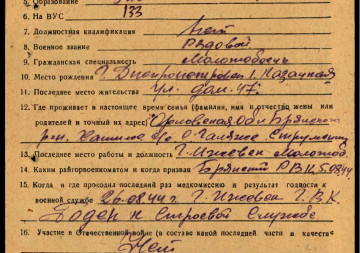 5. Образование
6. На ВУС 133
7. Должностная квалификация Нет
8. Военное звание Рядовой
9. Гражданская специальность Молотобоец
10. Место рождения Г. Днепропетровск
11. Последнее место жительства ул. дом. 47.
12. Где проживает в настоящее время семья (фамилия, имя и отчество жены или
родителей и точный их адрес) Орловская обл Брянский
р-он. с/о
13. Последнее место работы и должность Г. Ижевск Молотоб.
14. Каким райгорвоенкоматом и когда призван Брянский РВК 5.08.44
15. Когда и где проходил последний раз медкомиссию и результат годности к
военной службе 26.08.44 г. Г. Ижевск Г.В.К.
Годен к строевой службе
16. Участие в Отечественной войне (в составе какой последней части и качестве
Нет